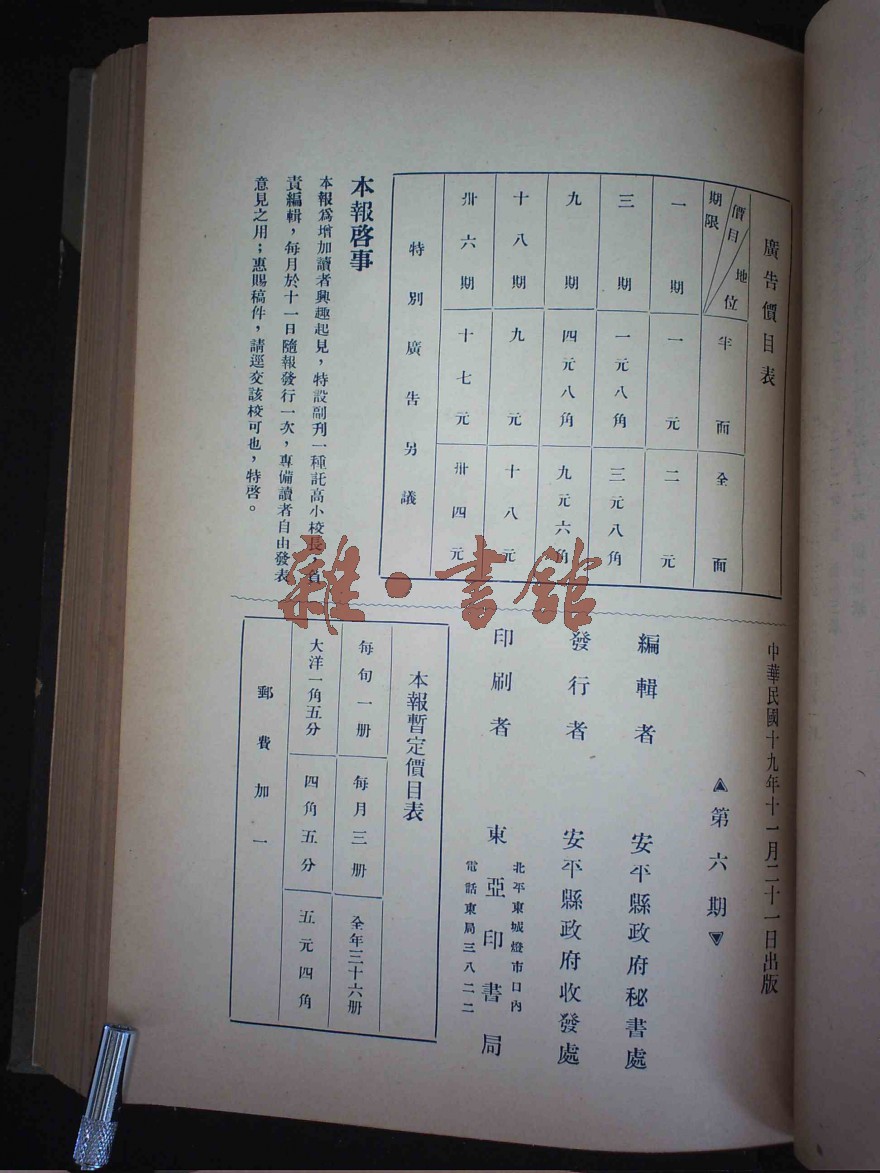 廣告價目表
價目 地位 期限 半面 全面
一期 一元 二元
三期 一元八角 三元八角
九期 四元八角 九元六角
十八期 九元 十八元
卅六期 十七元 卅四元
特別廣告另議
本報啓事
本報爲增加讀者興趣起見，特設副刊一種託高小校長，負
責編輯，每月於十一日隨報發行一次，專備讀者自由發表
意見之用；惠賜稿件，請逕交該校可也，特啓。
中華民國十九年十一月二十一日出版
▲第六期▼
編輯者 安平縣政府秘書處
發行者 安平縣政府收發處
印刷者 東亞印書局
北平東城燈市口內
電話東局三八二二
本報暫定價目表
每旬一册 每月三册 全年三十六册
大洋一角五分 四角五分 五元四角
郵費加一
雜·書館